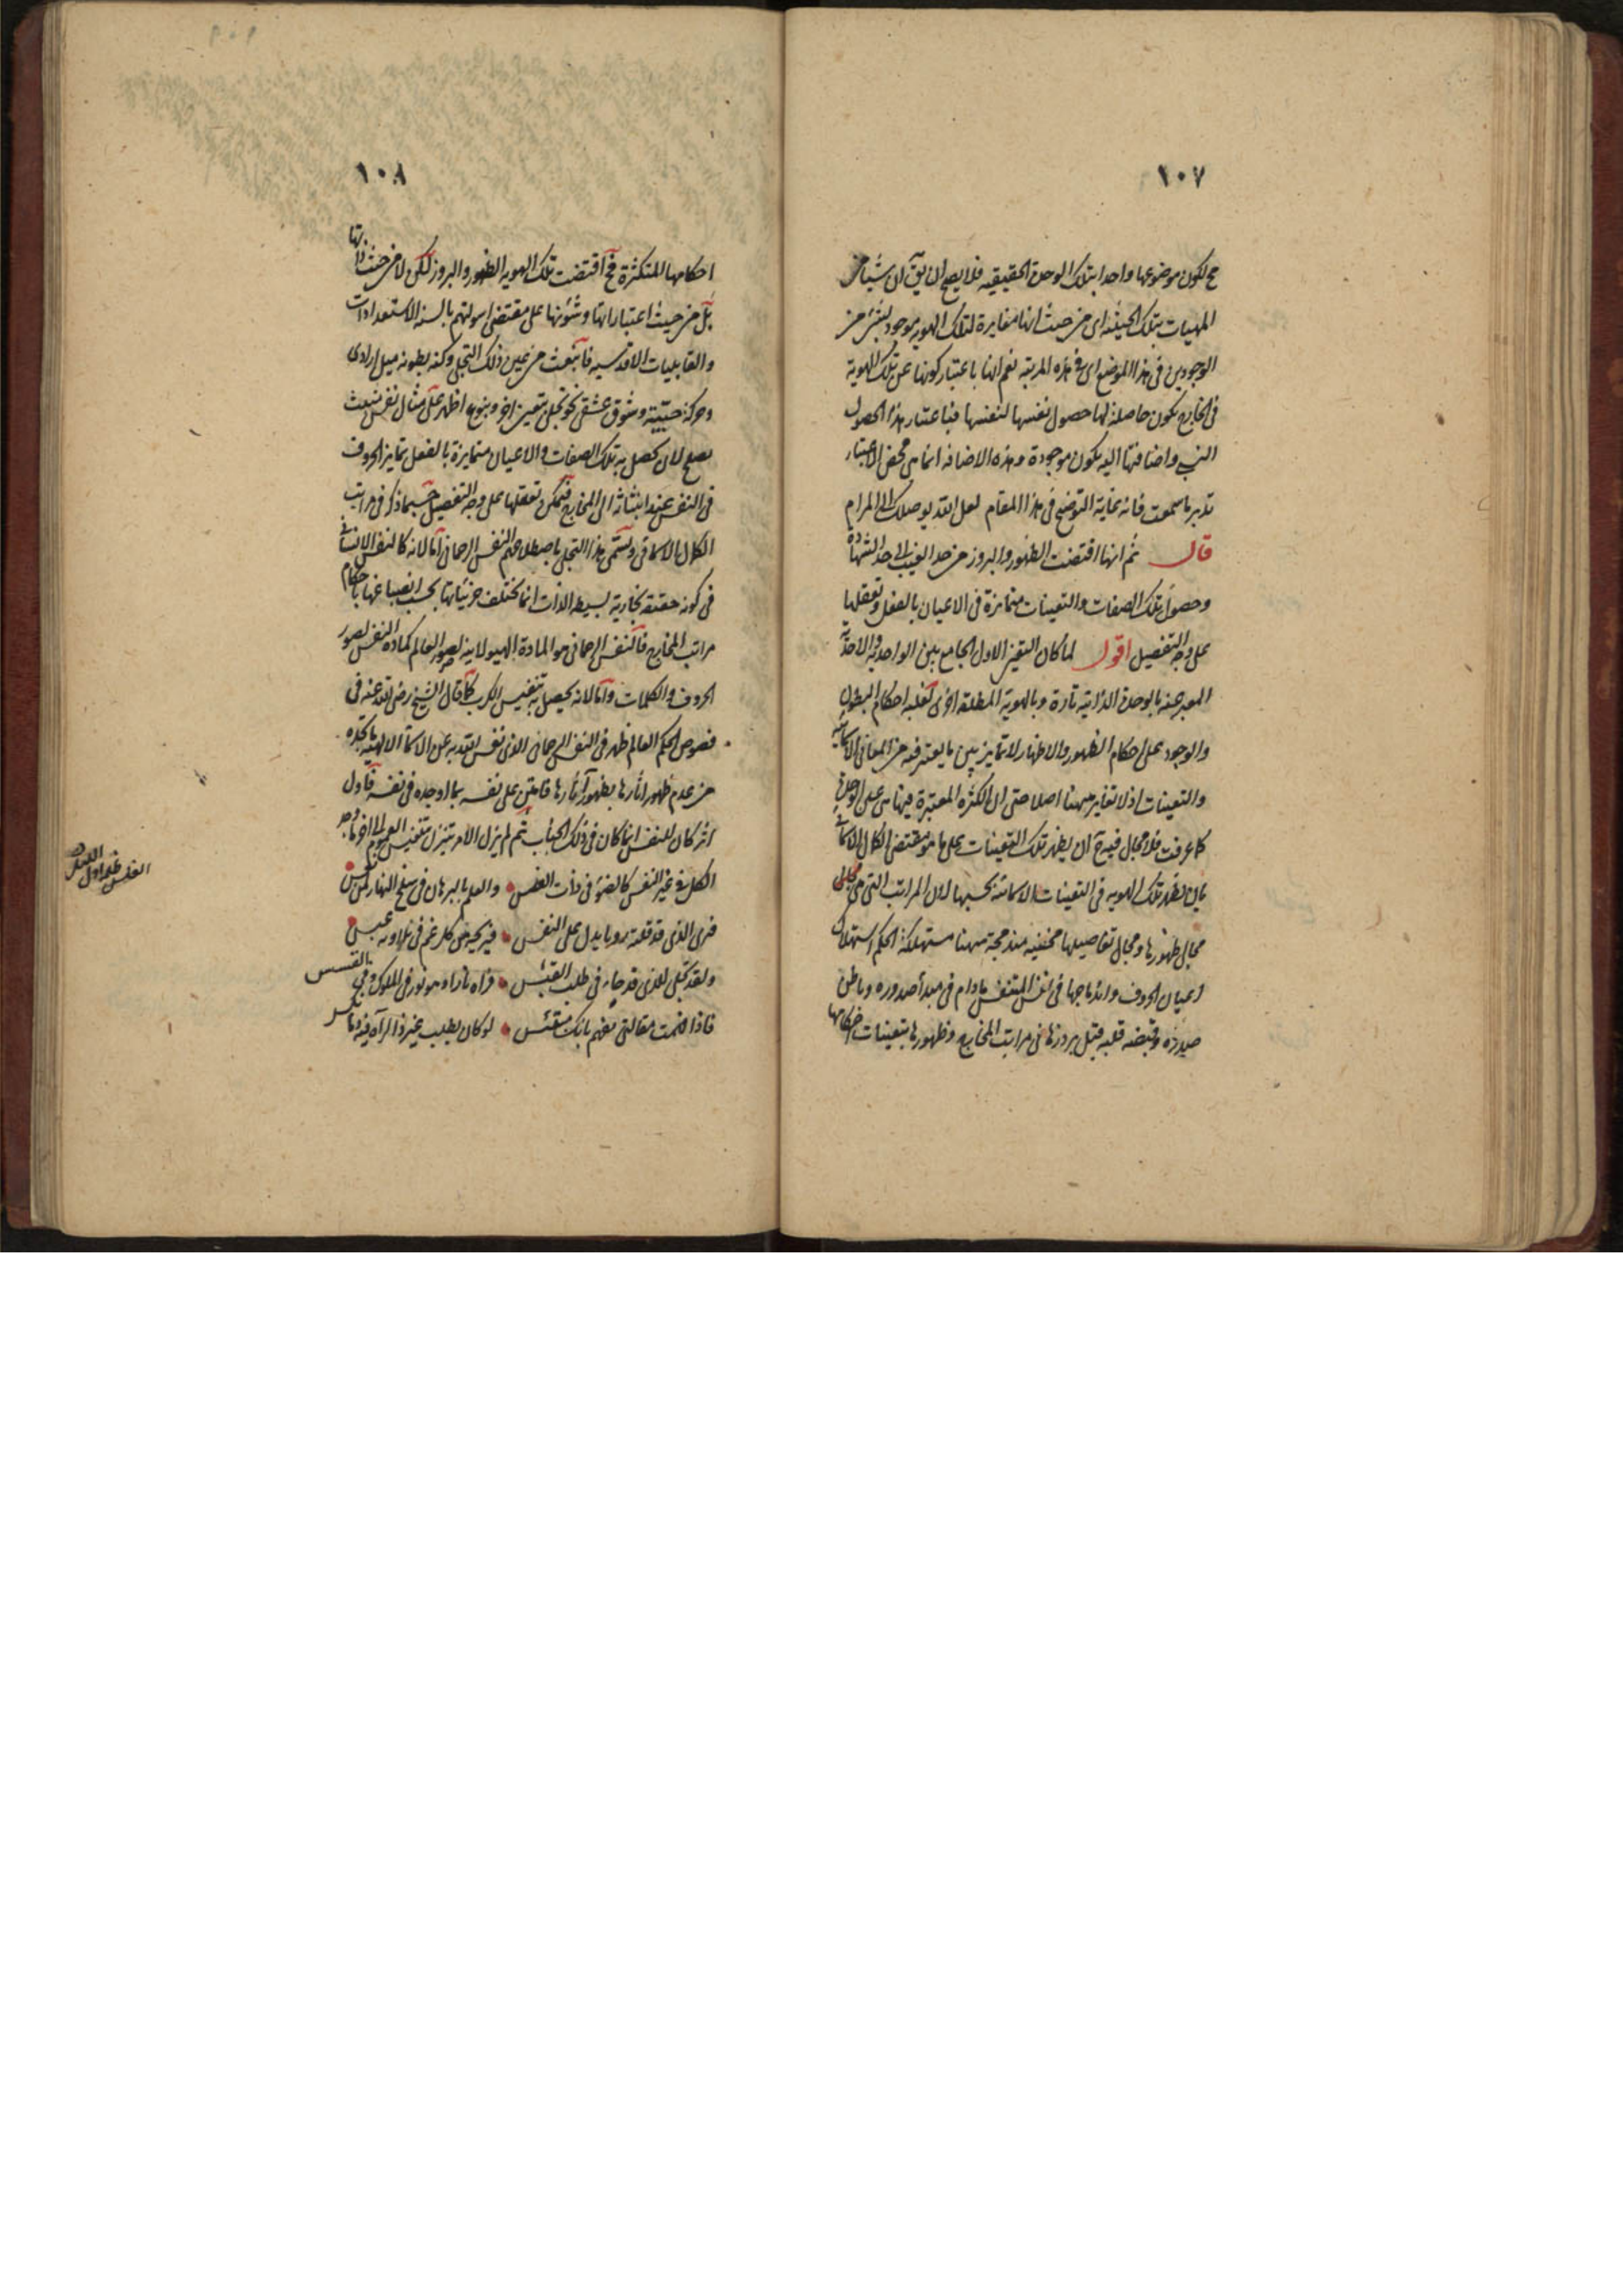 ١٠٧
ح لكون موضوعها واحدا بتلك الوحدة الحقيقيه فلا يصح ان يق ان شيئا من
المهيات بتلك الحيثية اى من حيث انها مغايرة لتلك الهويه موجود بشئ من
الوجودين فى هذا الموضع اى فى هذه المرتبه نعم انها باعتبار كونها عن تلك الهوية
فى الخارج يكون حاصلة لها حصول نفسها لنفسها فباعتبار هذا الحصول
النسب واضافتها اليه يكون موجودة وهذه الاضافه انما هى محض الاعتبار
تدبر ما سمعت فانه نهاية التوضيح فى هذا المقام لعل الله يوصلك الى المرام
قال ثم انها اقتضت الظهور والبروز من حد الغيب الى حد الشهادة
وحصول تلك الصفات والتعينات متمايزة فى الاعيان بالفعل وتعقلها
على وجه التفصيل اقول لما كان التعين الاول الجامع بين الواحدية والاحدية
المعبر عنه بالوحدة الذاتية تارة وبالهوية المطلقه اخرى لغلبه احكام البطون
والوجود على احكام الظهور والاظهار لا تمايز بين ما يعتبر فيه من المعانى الاسمائيه
والتعينات اذ لا تغاير ههنا اصلا حتى ان الكثرة المعتبرة فيها هى عين الوحدة
كما عرفت فلا مجال فيه ح ان يظهر تلك التعينات على ما هو مقتضى الكمال الاسمائى
بان يظهر تلك الهويه فى التعينات الاسمائية بحسبها لان المراتب التى هى مجلى
مجال ظهورها ومجال تفاصيلها مختفيه مندمجة ههنا مستهلكة الحكم استهلاك
اعيان الحروف واندماجها فى نفس المتنفس ما دام فى مبدأ صدوره وباطن
صدره وقبضه قلبه قبل بروزها فى مراتب المخارج وظهورها بتعينات احكامها
١٠٨
احكامها المتكثرة فح اقتضت تلك الهويه الظهور والبروز لكن لا من حيث ذاتها
بل من حيث اعتباراتها وشئونها على مقتضى اسولتهم بالسنه الاستعدادات
والقابليات الاقدسيه فانبعث من عين ذلك التجلى وكنه بطونه ميل ارادى
وحركة حبّيّة وشوق عشقى نحو تجلى بتعين اخر وبنوع اظهر على مثال نفس منبعث
يصلح لان يحصل به تلك الصفات والاعيان متمايزة بالفعل تمايز الحروف
فى النفس عند انبثاثه الى المخارج فيمكن تعقلها على وجه التفصيل حسبما ذكر فى مراتب
الكمال الاسمائى ويسمى هذا التجلى باصطلاحهم النفس الرحمانى اما لانه كالنفس الانسانى
فى كونه حقيقه بخارية بسيطه الذات انما يختلف جزئياتها بحسب انصباغها باحكام
مراتب المخارج فالنفس الرحمانى هو المادة الهيولانيه لصور العالم كمادة النفس لصور
الحروف والكلمات واما لانه يحصل به تنفيس الكرب كما قال الشيخ رضى الله عنه فى
فصوص الحكم العالم ظهر فى النفس الرحمانى الذى نفس الله به عن الاسماء الالهيه ما تجده
من عدم ظهور اثارها بظهور آثارها فامتن على نفسه بما اوجده فى نفسه فاول
اثر كان للنفس انما كان فى ذلك الجناب ثم لم يزل الامر يتنزل بتنفيس العموم الى اخر ما وجد
الكل فى عين النفس كالضوء فى ذات الغلس والعلم بالبرهان فى سلخ النهار لمن نعس
فيرى الذى قد قلته رويا يدل على النفس فيريحه من كل غم فى تلاوته عبس
ولقد تجلى للذى قد جاء فى طلب القبس فراه نارا وهو نور فى الملوك وفى العسس
فاذا فهمت مقالتى تعلم بانك مبتئس لو كان يطلب غير ذا لرآه فيه وما نكس
الغلس ظلمة اول الليل